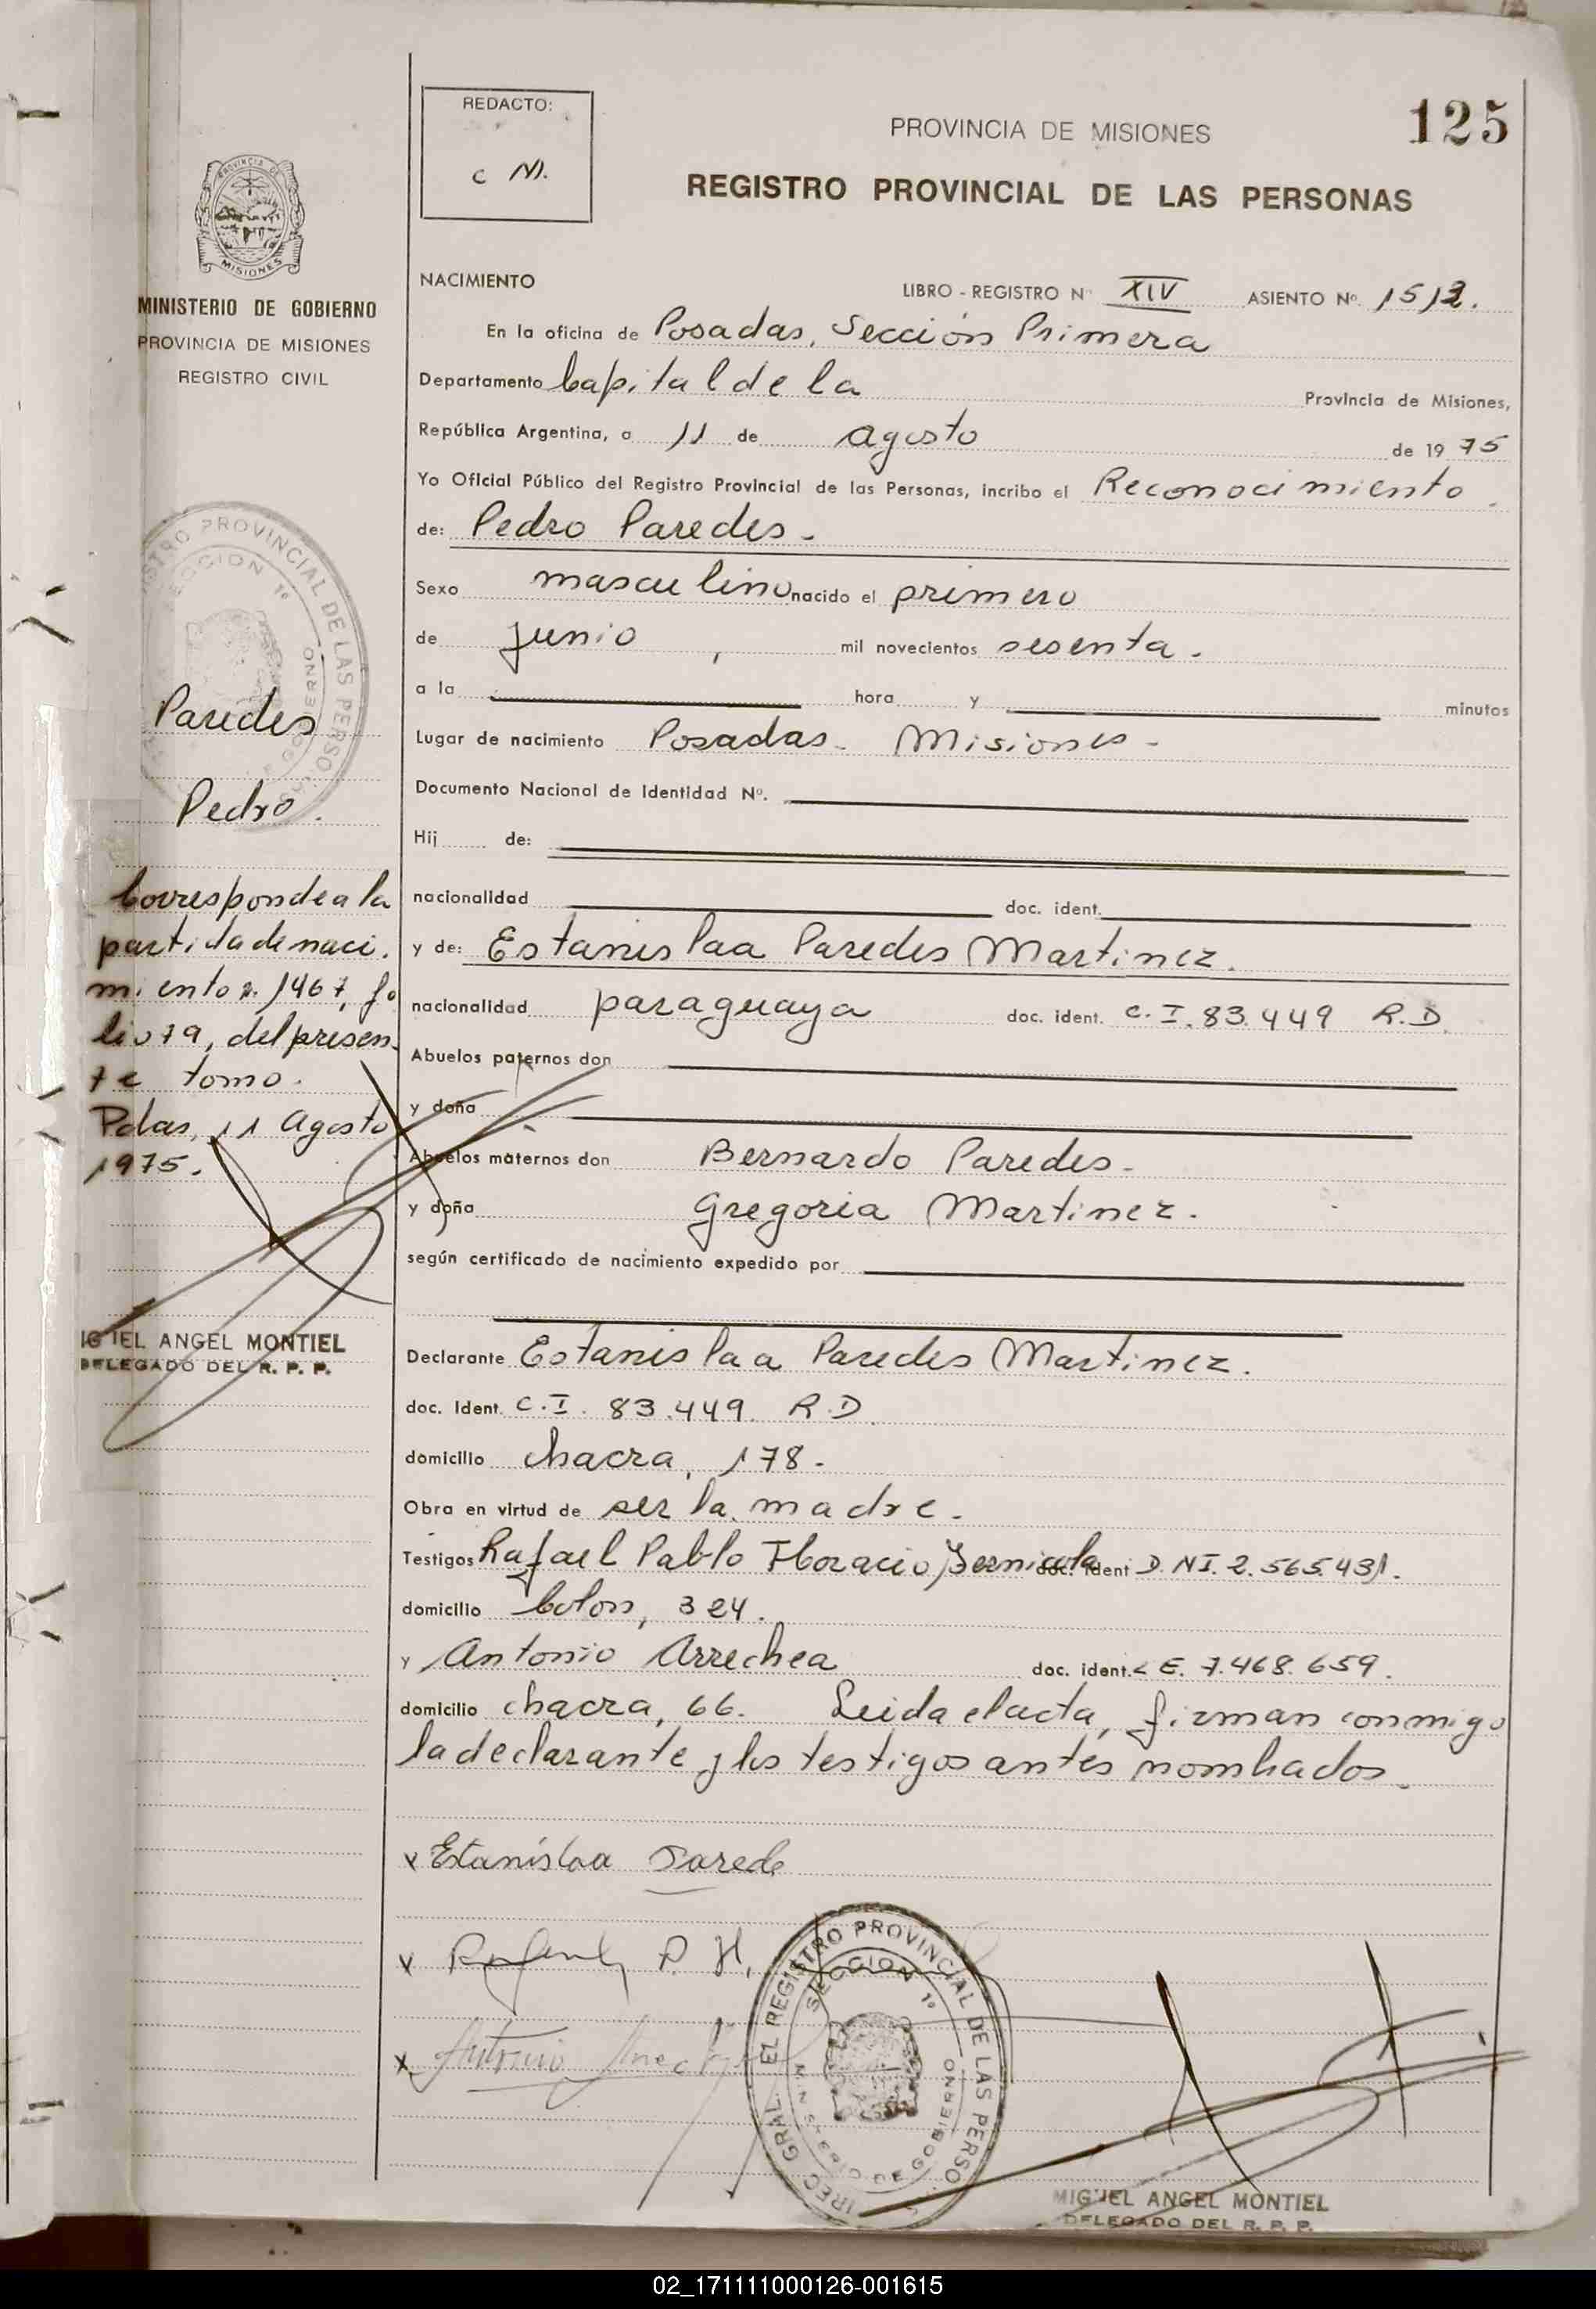 125
REDACTO:
C M.
PROVINCIA DE MISIONES
REGISTRO PROVINCIAL DE LAS PERSONAS
PROVINCIA DE
MISIONES
MINISTERIO DE GOBIERNO
PROVINCIA DE MISIONES
REGISTRO CIVIL
NACIMIENTO
LIBRO - REGISTRO Nº XIV ASIENTO Nº. 1512.
En la oficina de Posadas, Sección Primera
Departamento Capital de la Provincia de Misiones,
República Argentina, a 11 de agosto de 1975
Yo Oficial Público del Registro Provincial de las Personas, incribo el Reconocimiento
de: Pedro Paredes.
Sexo masculino nacido el primero
de junio, mil novecientos sesenta.
a la hora y minutos
Lugar de nacimiento Posadas - Misiones -
Documento Nacional de Identidad Nº.
Hij de:
nacionalidad doc. ident.
y de: Estanislaa Paredes Martinez.
nacionalidad paraguaya doc. ident. C. I. 83.449 R.D.
Abuelos paternos don
y doña
Abuelos maternos don Bernardo Paredes -
y doña Gregoria Martinez.
según certificado de nacimiento expedido por
Declarante Estanislaa Paredes Martinez.
doc. Ident. C. I. 83.449. R.D.
domicilio chacra, 178.
Obra en virtud de ser la madre.
Testigos Rafael Pablo Horacio doc. ident D.NI. 2.565.431.
domicilio Colon, 324.
y Antonio Arrechea doc. ident. L E. 7.468.659.
domicilio chacra, 66. Leida el acta, firman conmigo
la declarante y los testigos antes nombados.
x Estanislaa Parede
x P. H.
x Antonio
REGISTRO PROVINCIAL DE LAS PERSO
SECCION 1º
MINISTERIO DE GOBIERNO
MIGUEL ANGEL MONTIEL
DELEGADO DEL R. P. P.
Paredes
Pedro.
Corresponde a la
partida de naci.
miento n. 1467, fo
lio 79, del presen-
te tomo.
Pdas, 11 Agosto
1975.
IGUEL ANGEL MONTIEL
DELEGADO DEL R. P. P.
REGISTRO PROVINCIAL DE LAS PERSO
SECCION 1º
GOBIERNO
02_171111000126-001615